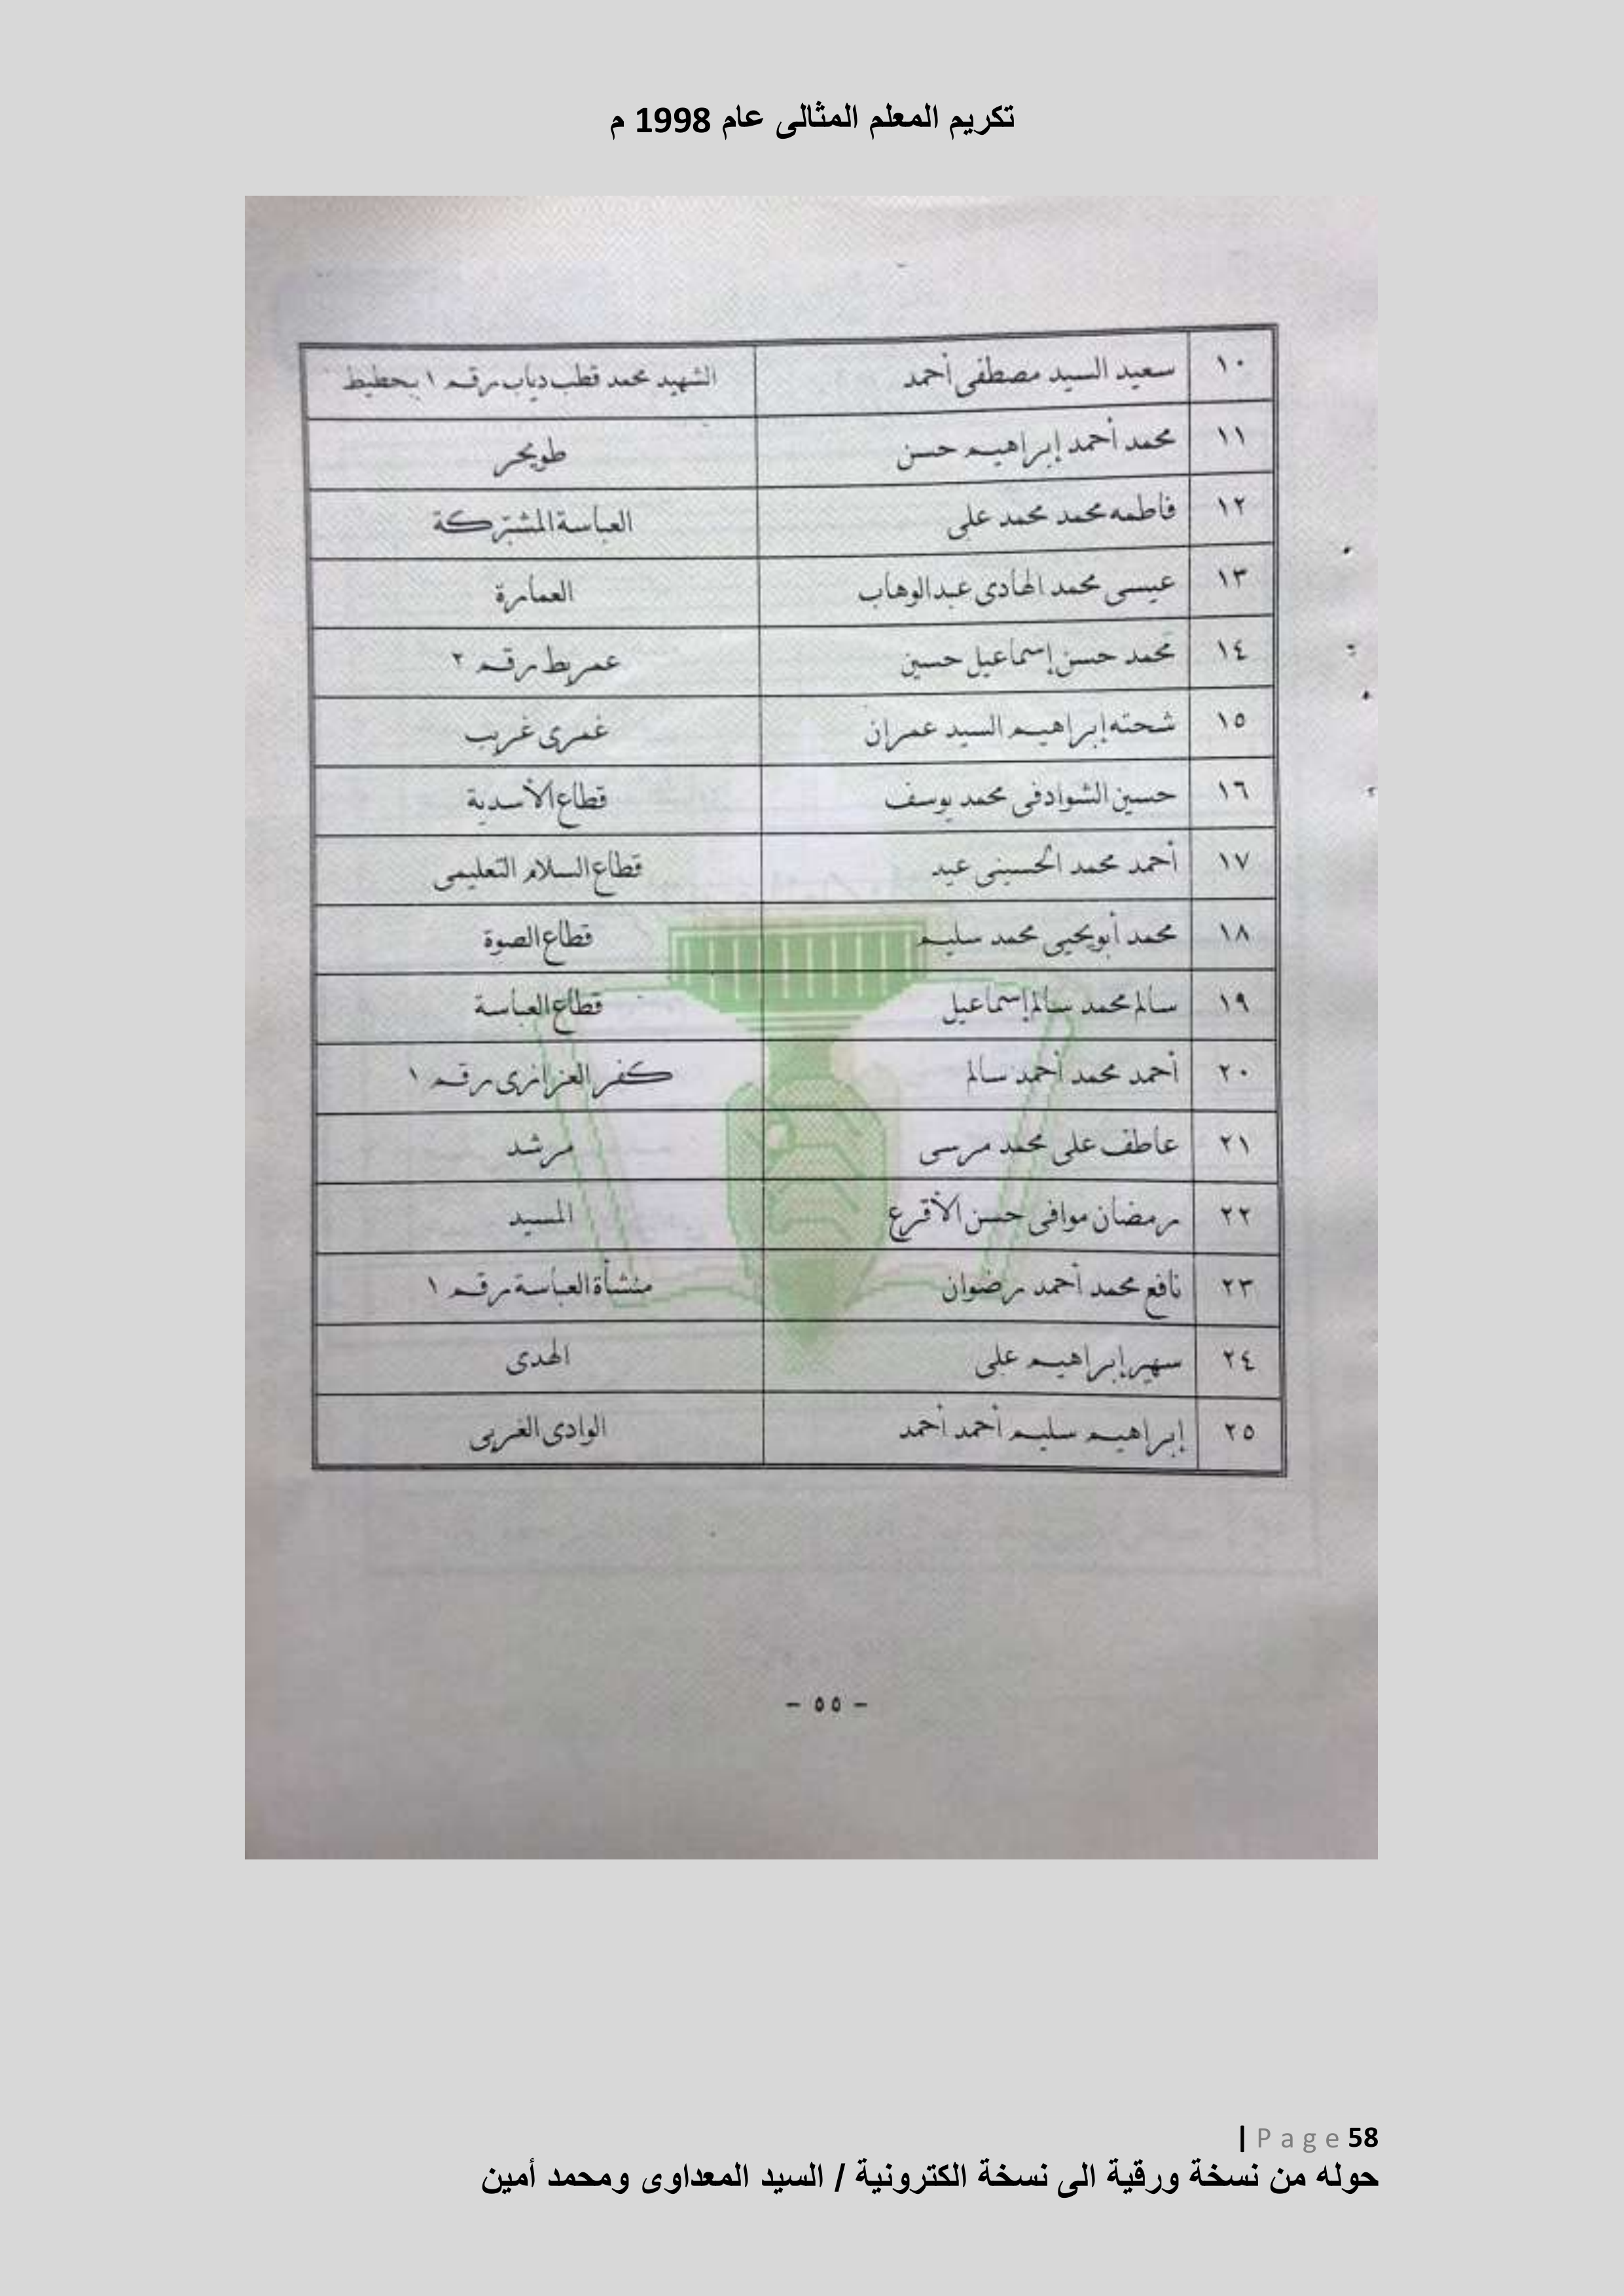 تكريم المعلم المثالى عام 1998 م
١٠ سعيد السيد مصطفى أحمد الشهيد محمد قطب دياب رقم ١ بحطيط
١١ محمد أحمد إبراهيم حسن طويحر
١٢ فاطمه محمد محمد على العباسة المشتركة
١٣ عيسى محمد الهادى عبد الوهاب العمارة
١٤ محمد حسن إسماعيل حسين عمريط رقم ٢
١٥ شحته إبراهيم السيد عمران غمرى غريب
١٦ حسين الشوادفى محمد يوسف قطاع الأسدية
١٧ أحمد محمد الحسينى عيد قطاع السلام التعليمى
١٨ محمد أبو يحيى محمد سليم قطاع الصوة
١٩ سالم محمد سالم إسماعيل قطاع العباسة
٢٠ أحمد محمد أحمد سالم كفر العزازى رقم ١
٢١ عاطف على محمد مرسى مرشد
٢٢ رمضان موافى حسن الأقرع المسيد
٢٣ نافع محمد أحمد رضوان منشأة العباسة رقم ١
٢٤ سهير إبراهيم على الهدى
٢٥ إبراهيم سليم أحمد أحمد الوادى الغربى
- ٥٥ -
| Page 58
حوله من نسخة ورقية الى نسخة الكترونية / السيد المعداوى ومحمد أمين